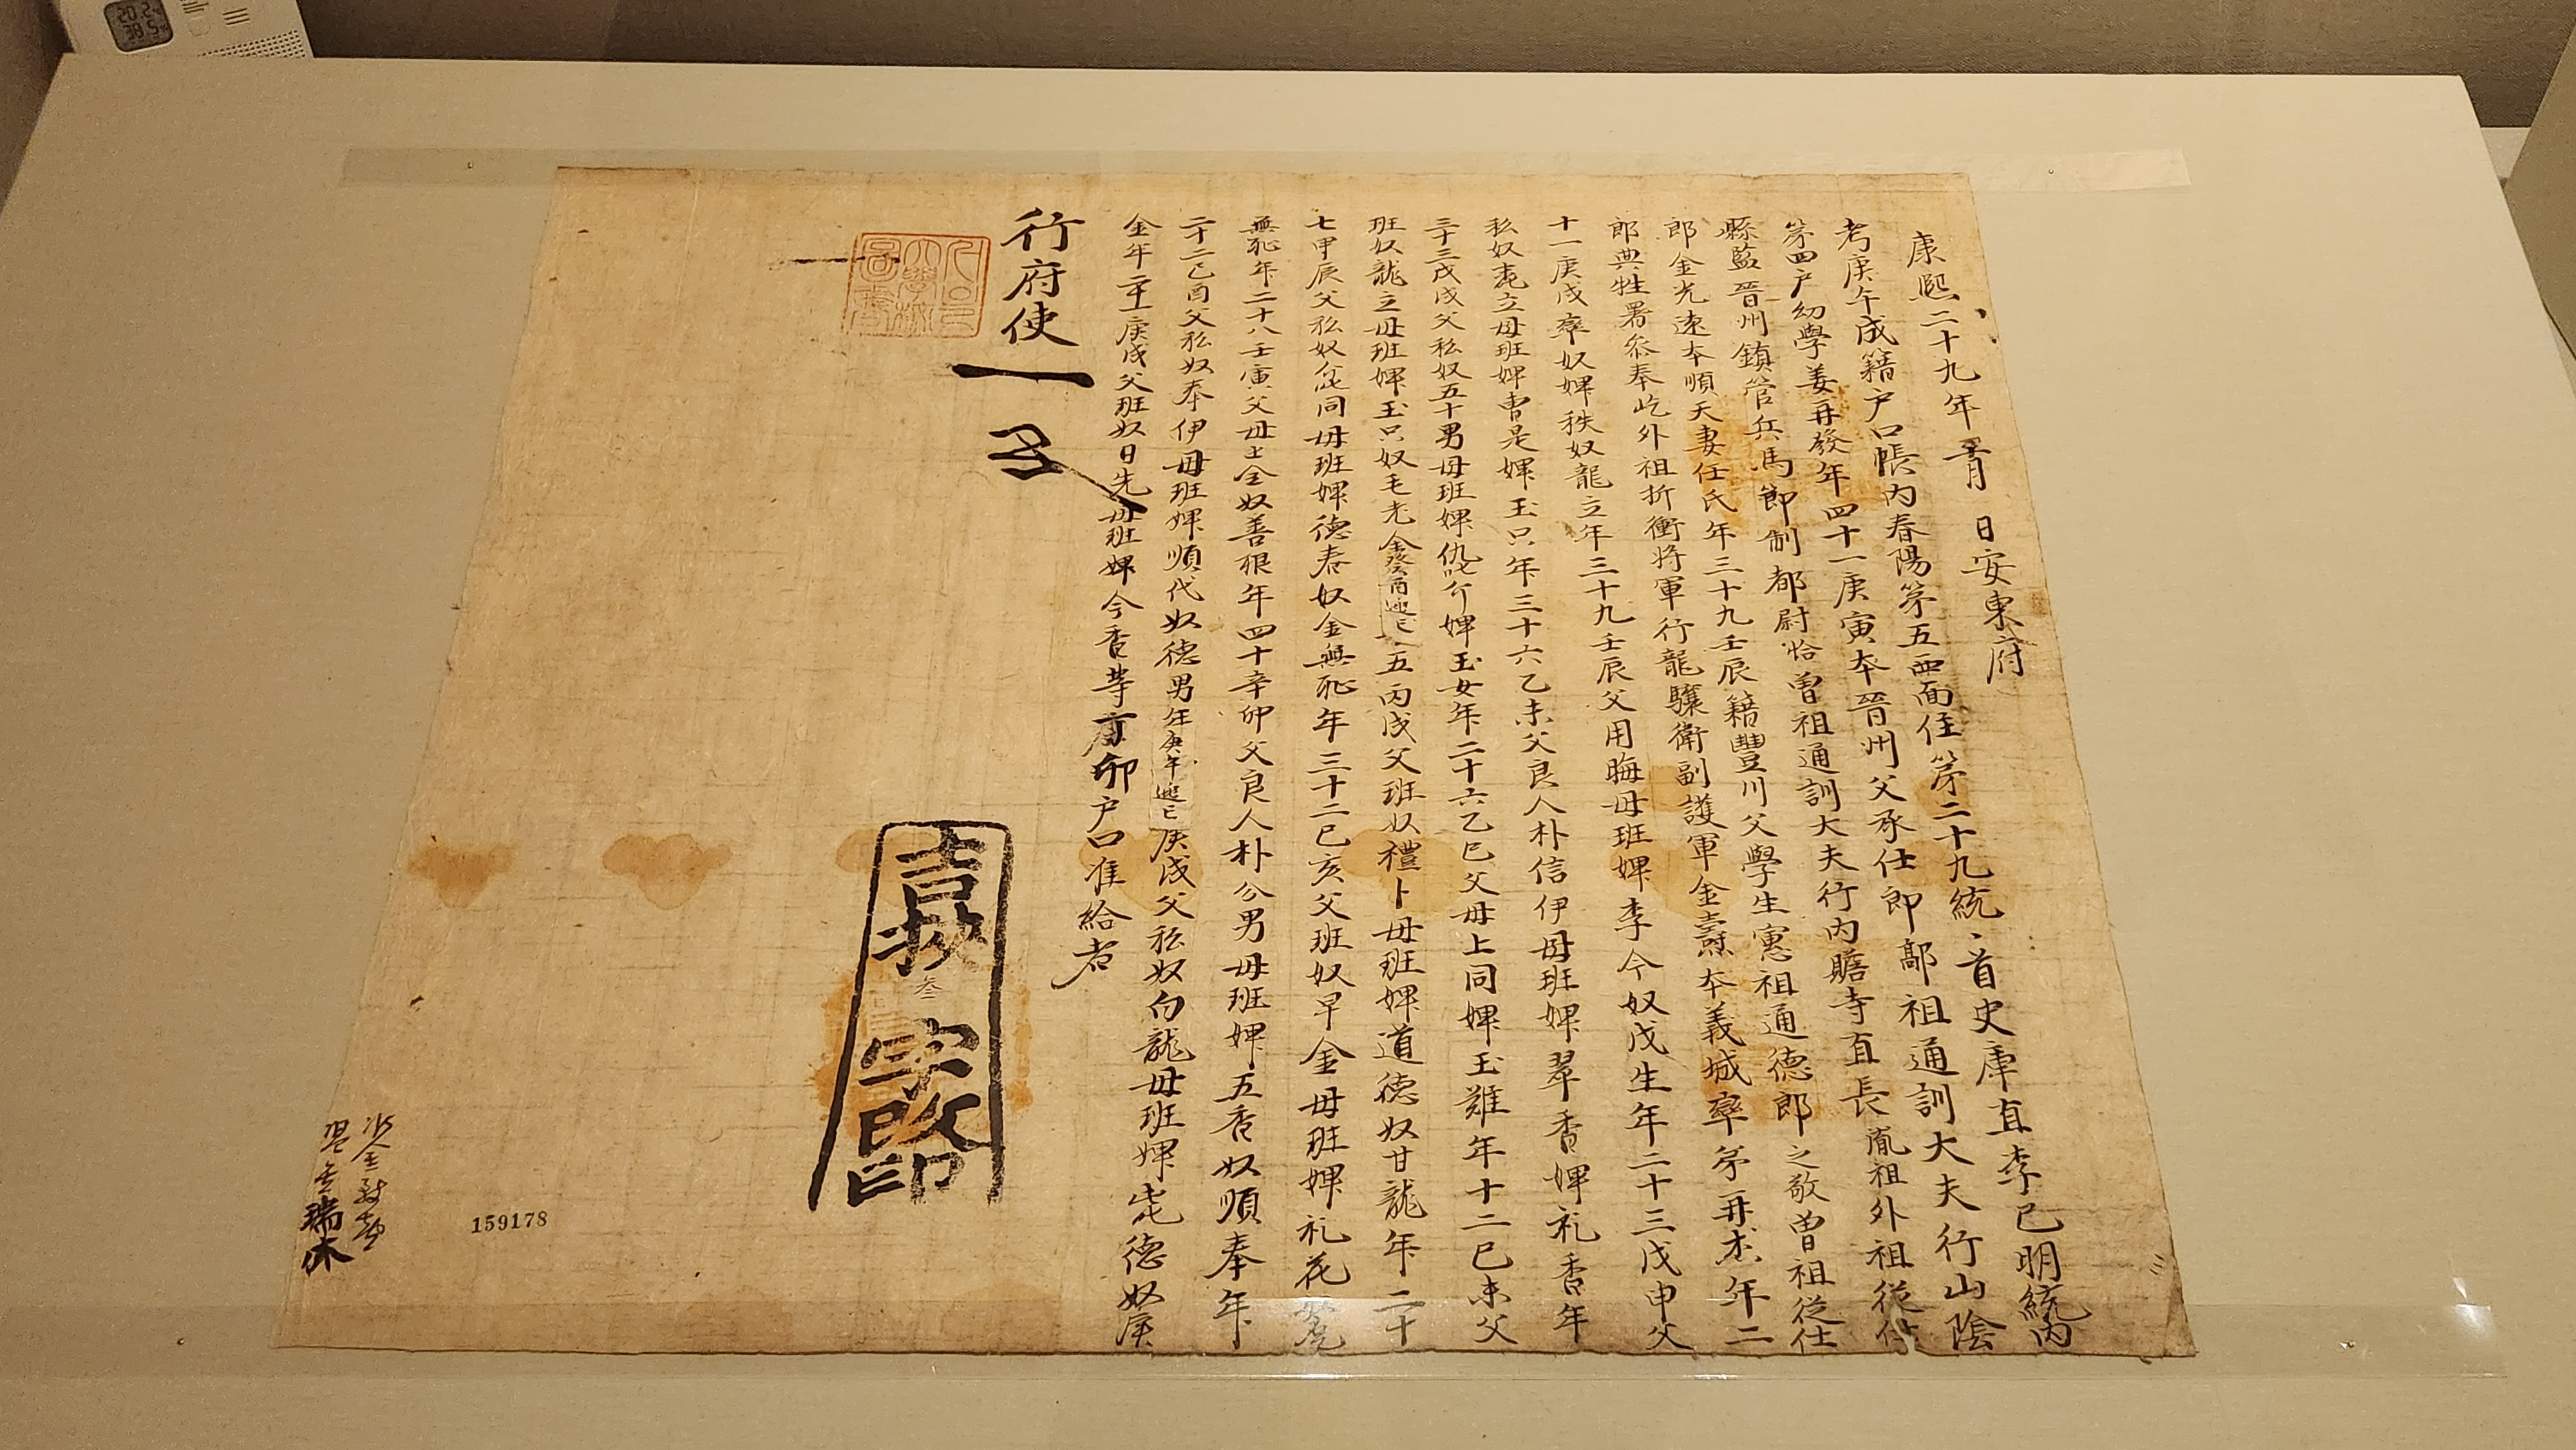 康熙二十九年 月 日安東府
考庚午成籍户口帳內春陽苐五西面住苐二十九統、首史庫直李已明統內
苐四户幼學姜再發年四十一庚寅夲晉州父承仕郎鄗祖通訓大夫行山陰
縣監晉州鎮管兵馬節制都尉恰曽祖通訓大夫行內贍寺直長胤祖外祖従仕
郎金光速夲順天妻任氏年三十九壬辰籍豐川父學生寯祖通德郎之敬曽祖従仕
郎典牲署叅奉屹外祖折衝将軍行龍驤衛副護軍金壽夲義城率苐再杰年二
十一庚戌率奴婢秩奴龍立年三十九壬辰父用晦母班婢李今奴戊生年二十三戊申父
私奴 立母班婢曺是婢玉只年三十六乙未父良人朴信伊母班婢翠香婢礼香年
三十三戊戌父私奴五十男母班婢 婢玉女年二十六乙巳父母上同婢玉難年十二己未父
班奴龍立母班婢玉只奴毛老金癸酉逃亡 五丙戌父班奴禮卜母班婢道德奴甘龍年二十
七甲辰父私奴 同母班婢德春奴金無恥年三十二己亥父班奴早金母班婢礼花
無恥年二十八壬寅父母士仝奴善根年四十辛卯父良人朴公男母班婢五香奴順奉年
二十二己酉父私奴奉伊母班婢順代奴德男年庚午逃亡庚戌父私奴白龍母班婢 德奴
金年二十一庚戌父班奴日先母班婢今香䓁辛卯户口准給者
行府使
周挾叄字改印
159178